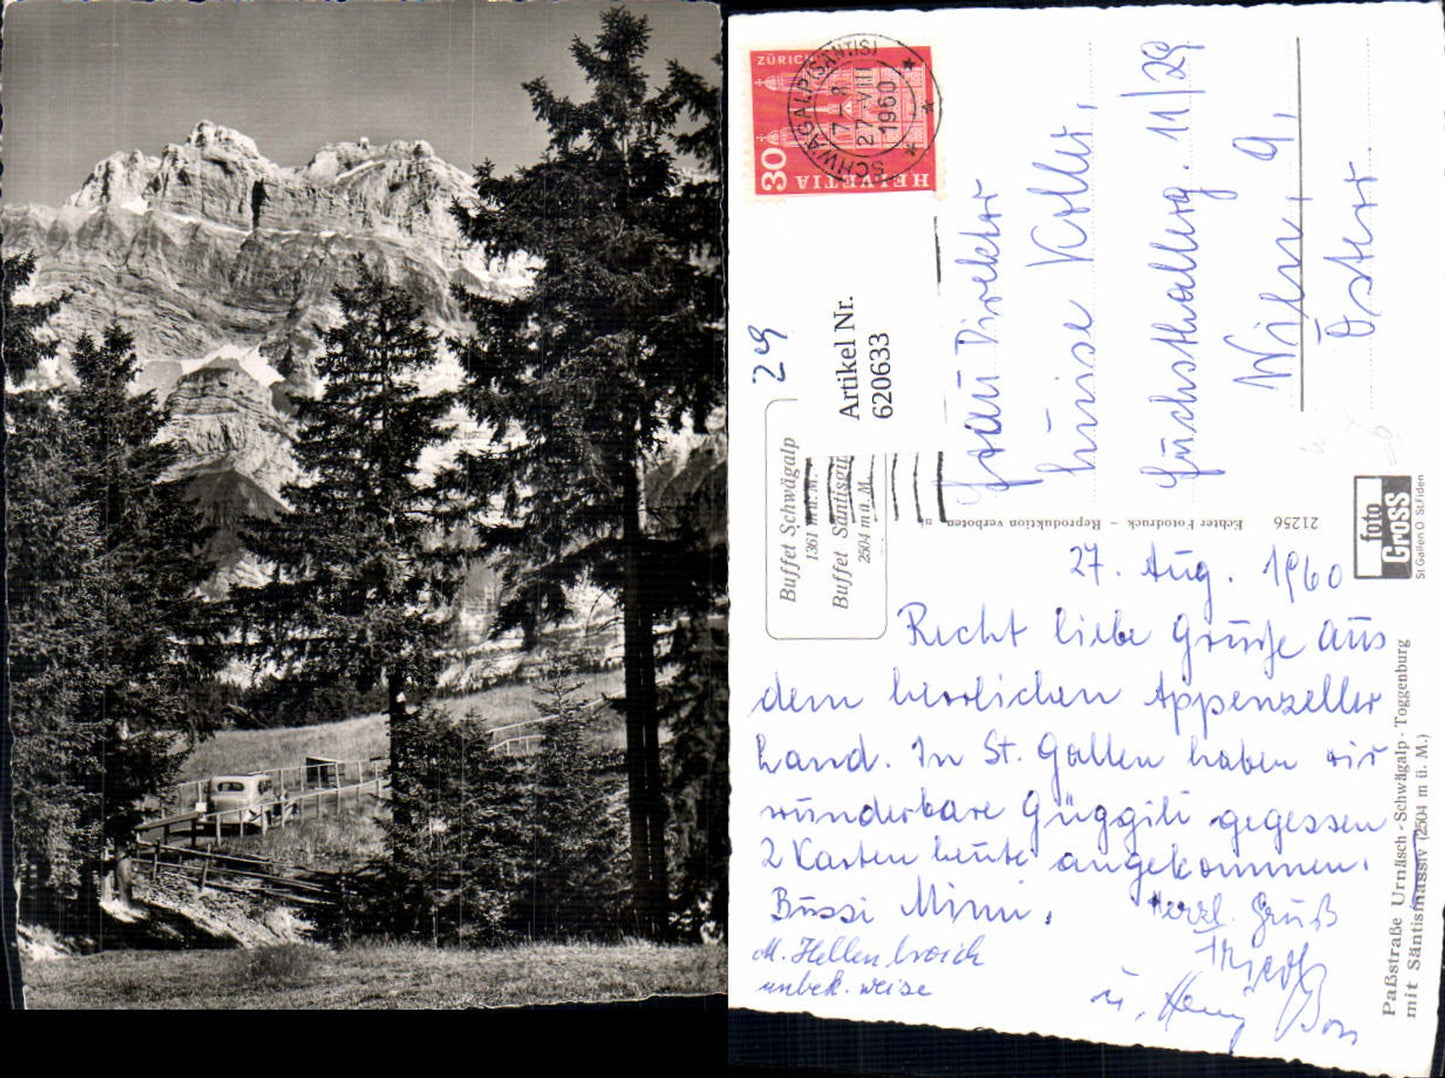 ZÜRICH
30
HELVETIA
SCHWÄGALP (SÄNTIS)
27.VIII
1960
29
Artikel Nr.
620633
Buffet Schwägalp
1361 m ü. M.
Buffet Säntisgipfel
2504 m ü. M.
Frau Direktor
Luise Koller,
Fuchsthallerg. 11/29
Wien, 9,
Öster.
21256 Echter Fotodruck – Reproduktion verboten
foto
Gross
St Gallen O St Fiden
27. Aug. 1960
Recht liebe Grüsse aus
dem herrlichen Appenzeller
Land. In St. Gallen haben wir
wunderbare Güggili gegessen
2 Karten heute angekommen.
Bussi Mimi,
Herzl. Gruß
M. Hellenbroich
unbek. weise
Paßstraße Urnäsch - Schwägalp - Toggenburg
mit Säntismassiv (2504 m ü. M.)